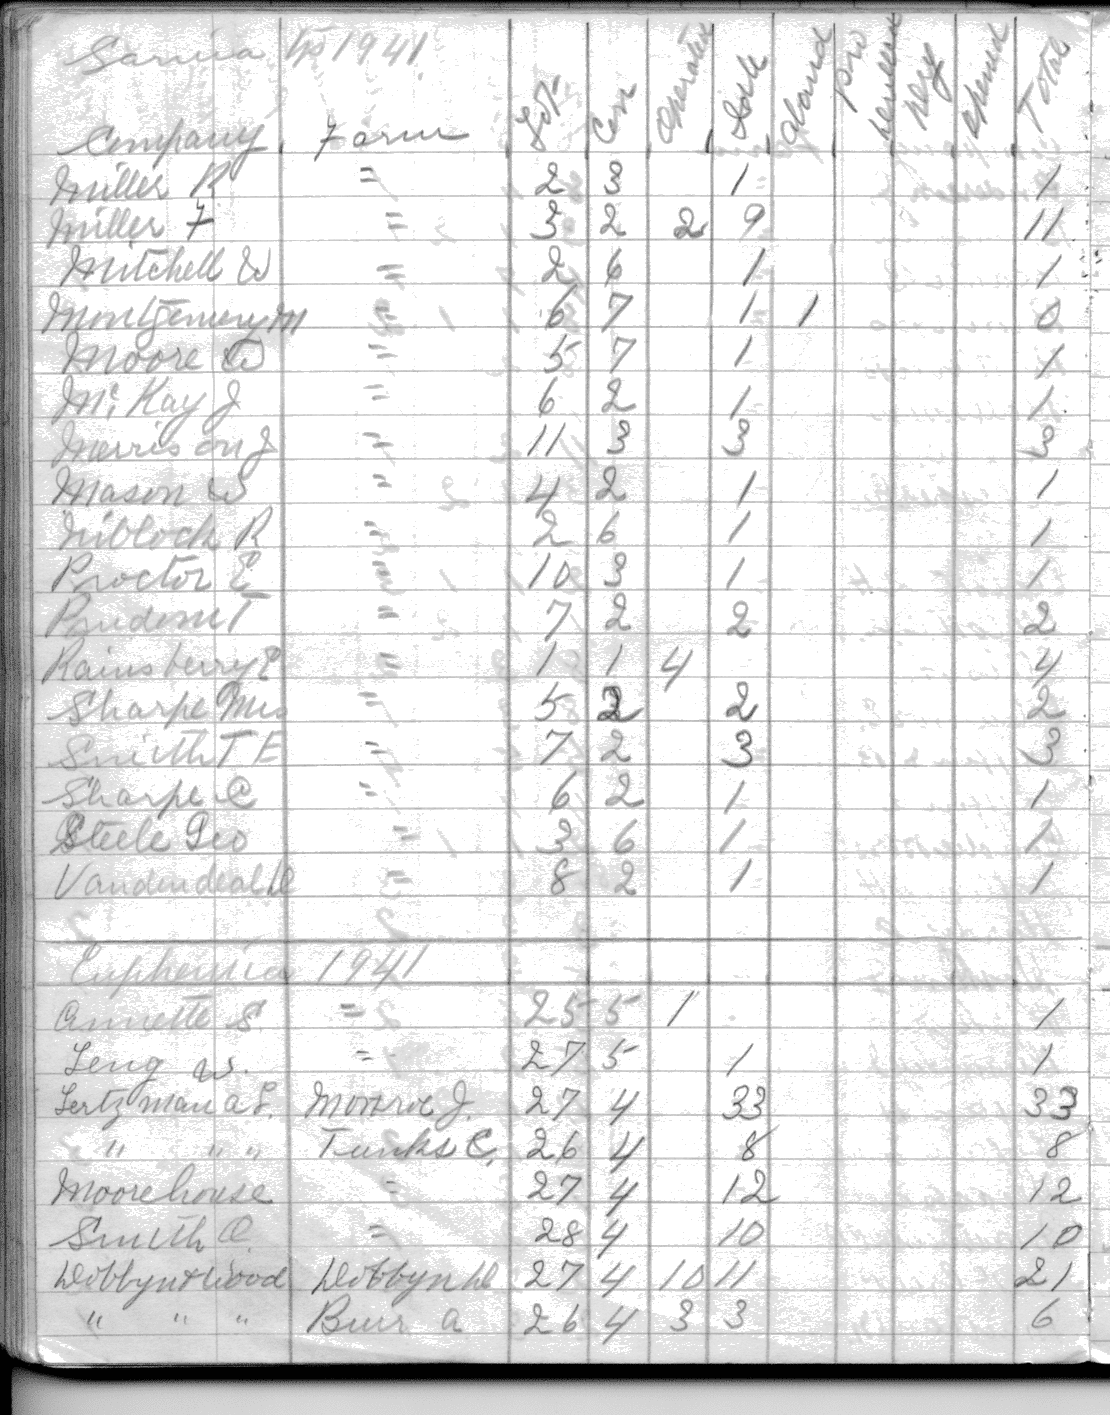 Sarnia Tp 1941
Company Farm Lot Con Operated Idle aband pro Total
Miller R " 2 3 1 1
Miller F " 3 2 2 9 11
Mitchell W " 2 6 1 1
Montgomery M " 6 7 1 1 0
Moore W " 5 7 1 1
McKay J " 6 2 1 1
Morrison J " 11 3 3 3
Mason W " 4 2 1 1
Niblock R " 2 6 1 1
Proctor E " 10 3 1 1
T " 7 2 2 2
Rainsberry E " 1 1 4 4
Sharpe Mrs " 5 2 2 2
Smith T E " 7 2 3 3
Sharpe C " 6 2 1 1
Steele Geo " 3 6 1 1
" 8 2 1 1
Euphemia 1941
Annette S. " 25 5 1 1
Leng W. " 27 5 1 1
Lertzman a L. Monroe J. 27 4 33 33
" " " Tunks C. 26 4 8 8
Moorehouse " 27 4 12 12
Smith O. " 28 4 10 10
Dobbyn & Wood Dobbyn D 27 4 10 11 21
" " " Burr a 26 4 3 3 6